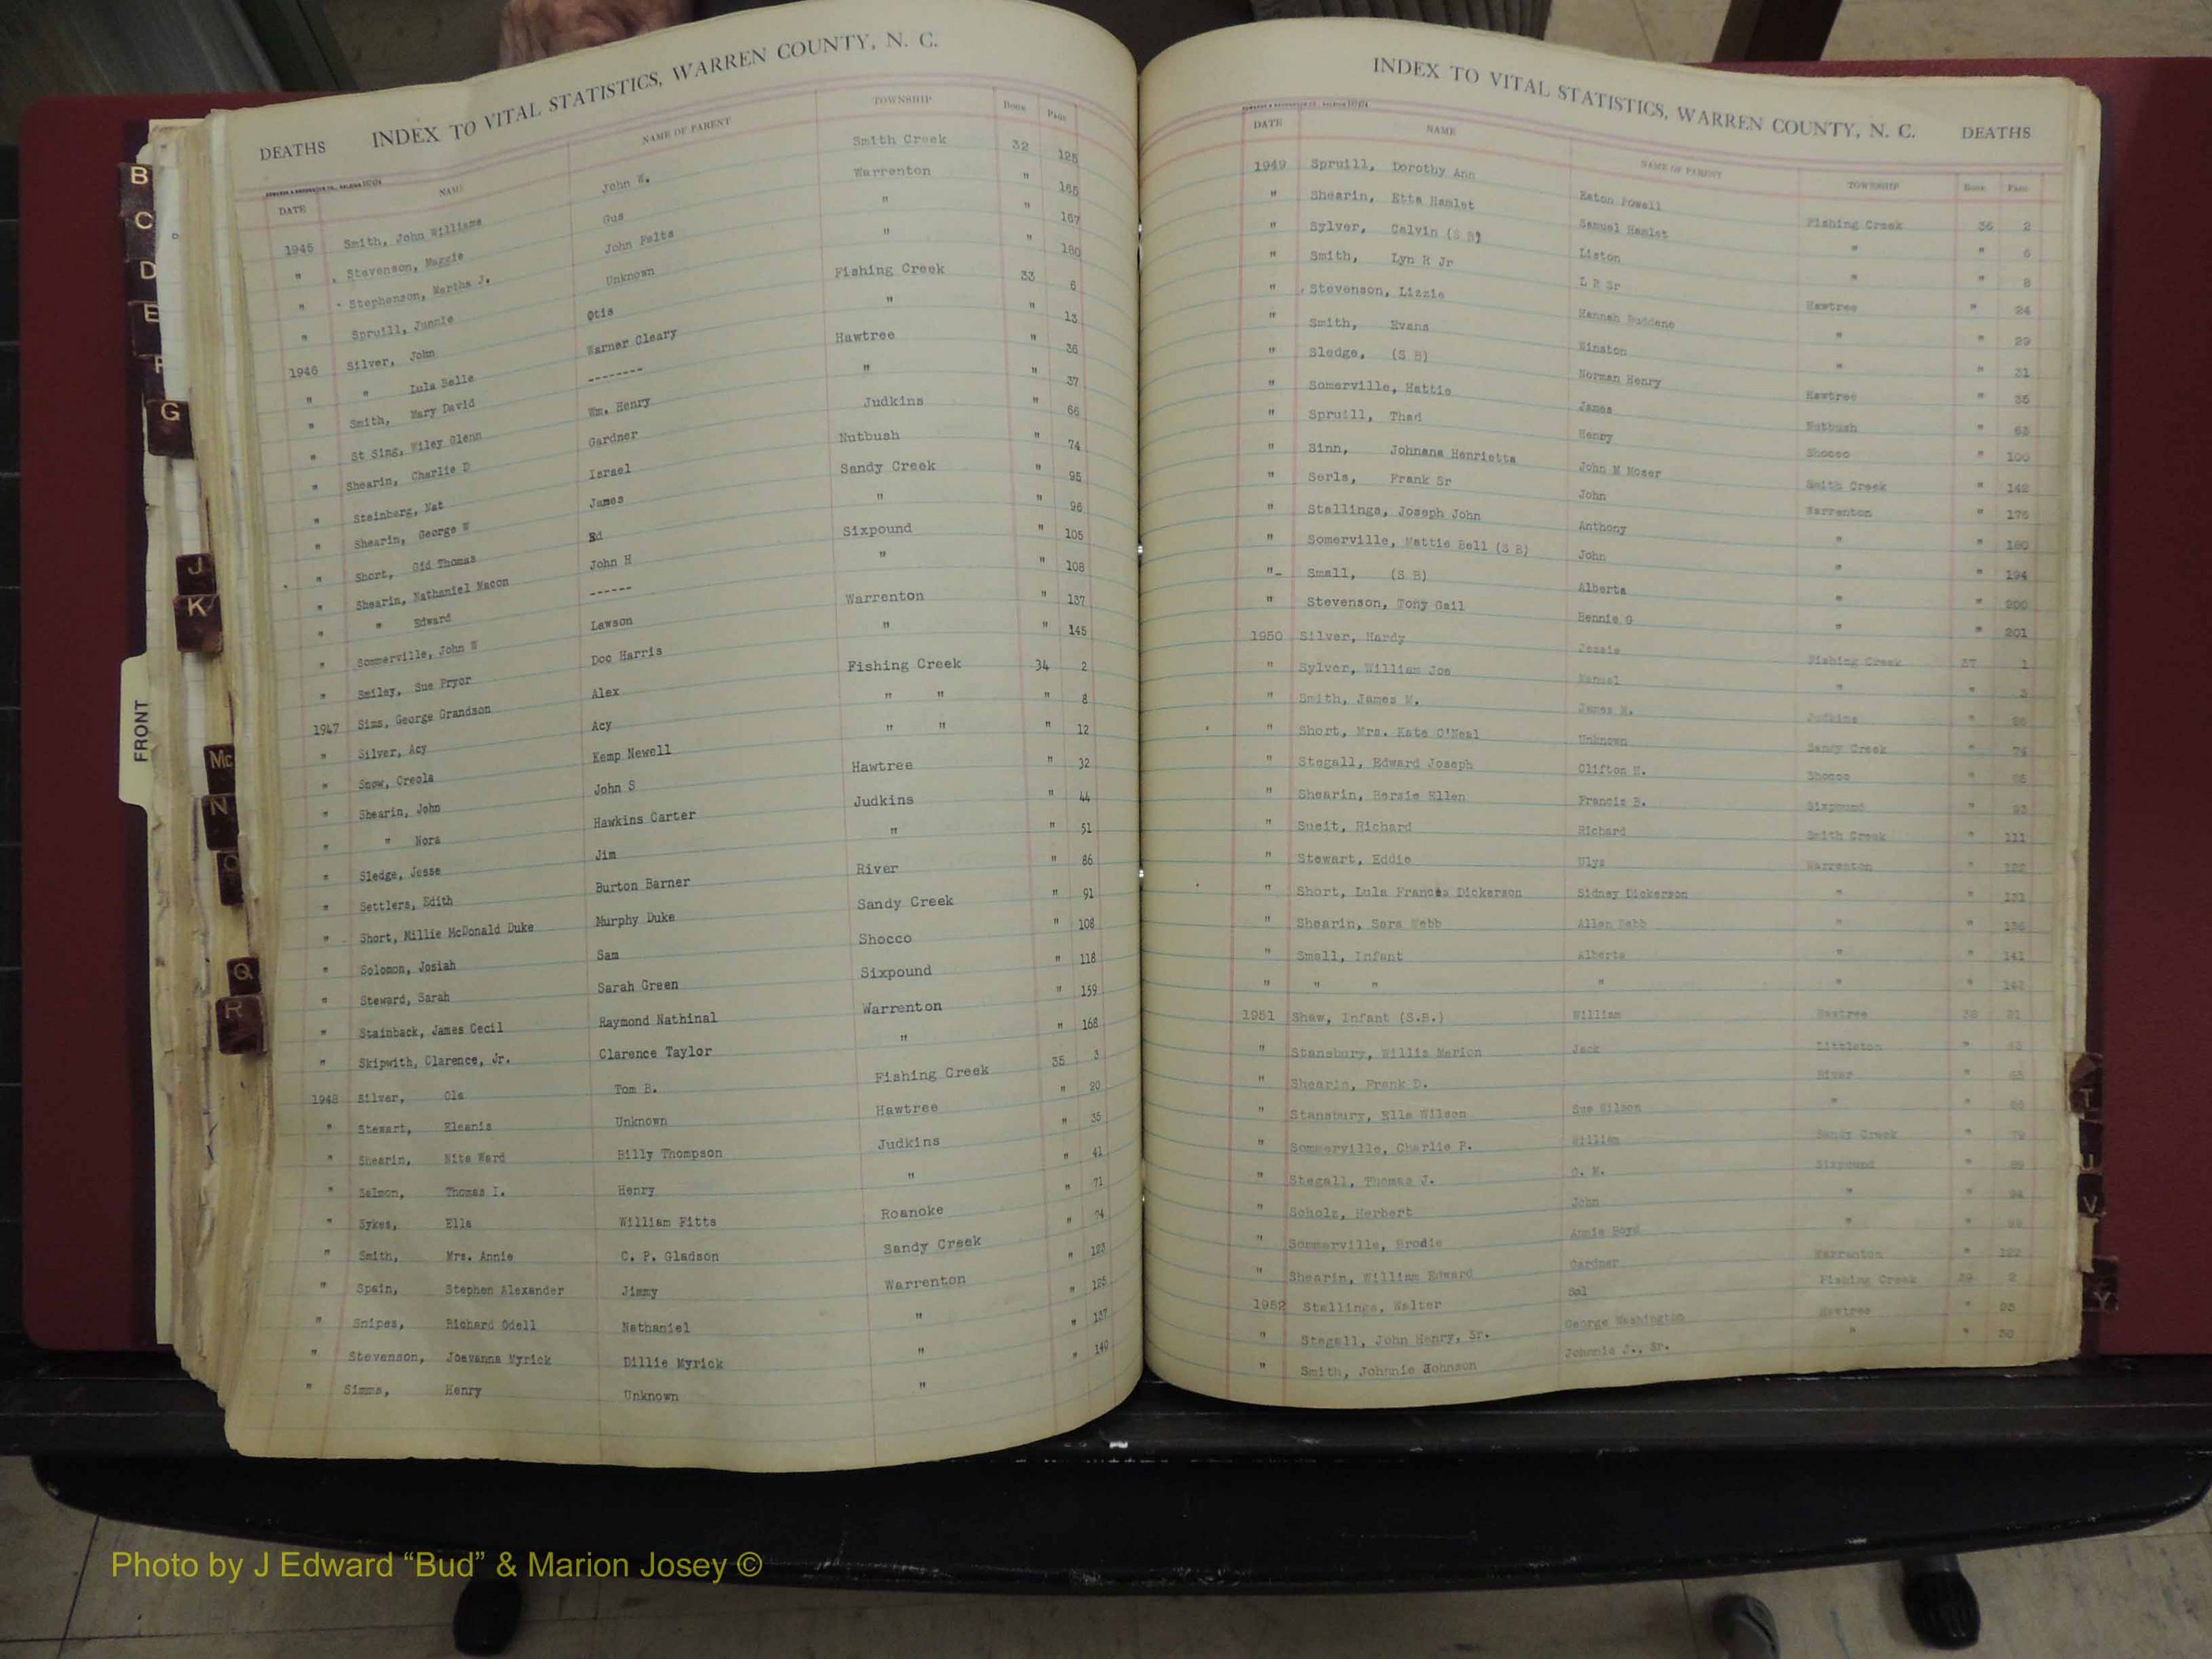 DEATHS INDEX TO VITAL STATISTICS, WARREN COUNTY, N. C.
DATE NAME NAME OF PARENT TOWNSHIP Book Page
1945 Smith, John Williams John W. Smith Creek 32 125
" Stevenson, Maggie Gus Warrenton " 165
" Stephenson, Martha J. John Felts " " 167
" Spruill, Junnie Unknown " " 180
1946 Silver, John Otis Fishing Creek 33 6
" " Lula Belle Warner Cleary " " 13
" Smith, Mary David -------- Hawtree " 36
" St Sing, Wiley Glenn Wm. Henry " " 37
" Shearin, Charlie D Gardner Judkins " 66
" Steinberg, Nat Israel Nutbush " 74
" Shearin, George W James Sandy Creek " 95
" Short, Gid Thomas Ed " " 96
" Shearin, Nathaniel Macon John H Sixpound " 105
" " Edward ------ " " 108
" Sommerville, John W Lawson Warrenton " 137
" Smiley, Sue Pryor Doc Harris " " 145
1947 Sims, George Grandson Alex Fishing Creek 34 2
" Silver, Acy Acy " " " 8
" Snow, Creola Kemp Newell " " " 12
" Shearin, John John S Hawtree " 32
" " Nora Hawkins Carter Judkins " 44
" Sledge, Jesse Jim " " 51
" Settlers, Edith Burton Barner River " 86
" Short, Millie McDonald Duke Murphy Duke Sandy Creek " 91
" Solomon, Josiah Sam Shocco " 108
" Steward, Sarah Sarah Green Sixpound " 118
" Stainback, James Cecil Raymond Nathinal Warrenton " 159
" Skipwith, Clarence, Jr. Clarence Taylor " " 168
1948 Silver, Ola Tom B. Fishing Creek 35 3
" Stewart, Eleanis Unknown Hawtree " 20
" Shearin, Nita Ward Billy Thompson Judkins " 35
" Salmon, Thomas I. Henry " " 41
" Sykes, Ella William Fitts Roanoke " 71
" Smith, Mrs. Annie C. P. Gladson Sandy Creek " 94
" Spain, Stephen Alexander Jimmy Warrenton " 123
" Snipes, Richard Odell Nathaniel " "
" Stevenson, Joevanna Myrick Dillie Myrick " " 137
" Simms, Henry Unknown " " 140
INDEX TO VITAL STATISTICS, WARREN COUNTY, N. C. DEATHS
DATE NAME NAME OF PARENT TOWNSHIP Book Page
1949 Spruill, Dorothy Ann Eaton Powell Fishing Creek 36 2
" Shearin, Etta Hamlet Samuel Hamlet " " 6
" Sylver, Calvin (S B) Liston " " 8
" Smith, Lyn R Jr L R Sr Hawtree " 24
" Stevenson, Lizzie Hannah Buddeno " " 29
" Smith, Evans Winston " " 31
" Sledge, (S B) Norman Henry Hawtree " 35
" Somerville, Hattie James Nutbush " 63
" Spruill, Thad Henry Shocco " 100
" Sinn, Johnana Henrietta John M Moser Smith Creek " 142
" Serls, Frank Sr John Warrenton " 176
" Stallings, Joseph John Anthony " " 180
" Somerville, Mattie Bell (S B) John " " 194
" Small, (S B) Alberta " " 200
" Stevenson, Tony Gail Bennie G " " 201
1950 Silver, Hardy Jessie Fishing Creek 37 1
" Sylver, William Joe Manuel " " 3
" Smith, James M. James M. Judkins "
" Short, Mrs. Kate O'Neal Unknown Sandy Creek " 74
" Stegall, Edward Joseph Clifton H. Shocco "
" Shearin, Hersie Ellen Francis B. Sixpound " 93
" Sueit, Richard Richard Smith Creek " 111
" Stewart, Eddie Ulys Warrenton " 122
" Short, Lula Frances Dickerson Sidney Dickerson " " 131
" Shearin, Sara Webb Allen Webb " " 136
" Small, Infant Alberta " " 141
" " " " " "
1951 Shaw, Infant (S.B.) William Hawtree 38 21
" Stansbury, Willis Marion Jack Littleton "
" Shearin, Frank D. River "
" Stansbury, Ella Wilson Sue Wilson " "
" Sommerville, Charlie P. William Sandy Creek "
" Stegall, Thomas J. G. M. Sixpound "
" Scholz, Herbert John " "
" Sommerville, Brodie Annie Boyd " "
" Shearin, William Edward Gardner Warrenton "
1952 Stallings, Walter Sol Fishing Creek 39 2
" Stegall, John Henry, Sr. George Washington Hawtree " 25
" Smith, Johnnie Johnson Johnnie J., Sr. " " 30
B
C
D
E
F
G
J
K
FRONT
Mc
N
O
Q
R
T
U
V
Y
Photo by J Edward “Bud” & Marion Josey ©